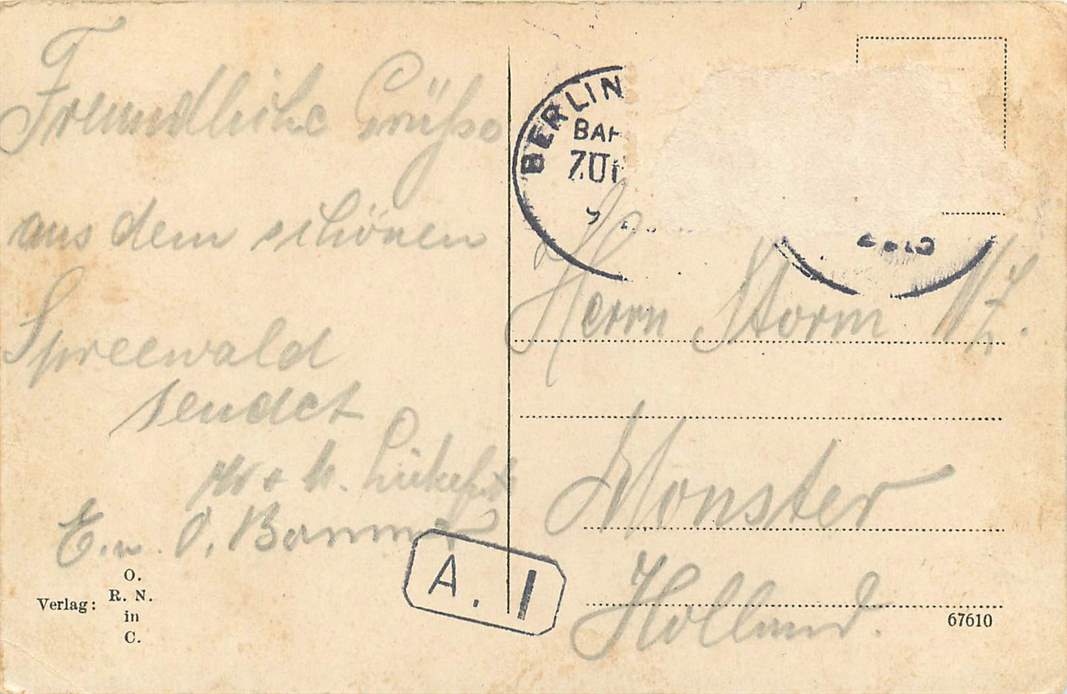 Freundliche Grüße
aus dem schönen
Spreewald
sendet
E. u. O.
Verlag:
O.
R. N.
in
C.
BERLIN
BAH
ZUG
A. I
Herrn Storm
Monster
Holland.
67610